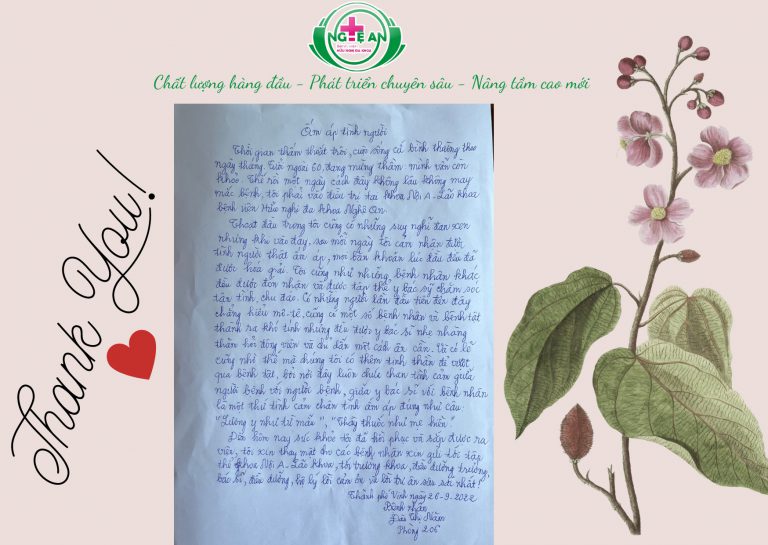 NGHỆ AN
BỆNH VIỆN
HỮU NGHỊ ĐA KHOA
Chất lượng hàng đầu - Phát triển chuyên sâu - Nâng tầm cao mới
Thank You!
Ấm áp tình người
Thời gian thấm thoắt trôi, cuộc sống cứ bình thường theo
ngày tháng. Tuổi ngoài 60, đang mừng thầm mình vẫn còn
khỏe. Thế rồi một ngày cách đây không lâu không may
mắc bệnh, tôi phải vào điều trị tại khoa Nội A - Lão khoa
bệnh viện Hữu nghị đa khoa Nghệ An.
Thoạt đầu trong tôi cũng có những suy nghĩ đan xen
nhưng khi vào đây, sau mỗi ngày tôi cảm nhận được
tình người thật ấm áp, mọi băn khoăn lúc đầu đều đã
được hóa giải. Tôi cũng như những bệnh nhân khác
đều được đón nhận và được tập thể y bác sỹ chăm sóc
tận tình, chu đáo. Có những người lần đầu tiên đến đây
chẳng hiểu mô tê, cũng có một số bệnh nhân vì bệnh tật
thành ra khó tính nhưng đều được y bác sĩ nhẹ nhàng
thăm hỏi động viên và chỉ dẫn một cách ân cần. Và có lẽ
cũng nhờ thế mà chúng tôi có thêm tinh thần để vượt
qua bệnh tật, bởi nơi đây luôn chứa chan tình cảm giữa
người bệnh với người bệnh, giữa y bác sĩ với bệnh nhân
là một thứ tình cảm chân tình ấm áp đúng như câu:
"Lương y như từ mẫu", "Thầy thuốc như mẹ hiền"
Đến hôm nay sức khỏe tôi đã hồi phục và sắp được ra
viện, tôi xin thay mặt cho các bệnh nhân xin gửi tới tập
thể khoa Nội A - Lão khoa, tới trưởng khoa, điều dưỡng trưởng,
bác sĩ, điều dưỡng, hộ lý lời cảm ơn và lời tri ân sâu sắc nhất!
Thành phố Vinh ngày 26-9-2022
Bệnh nhân
Đậu Thị Năm
Phòng 206